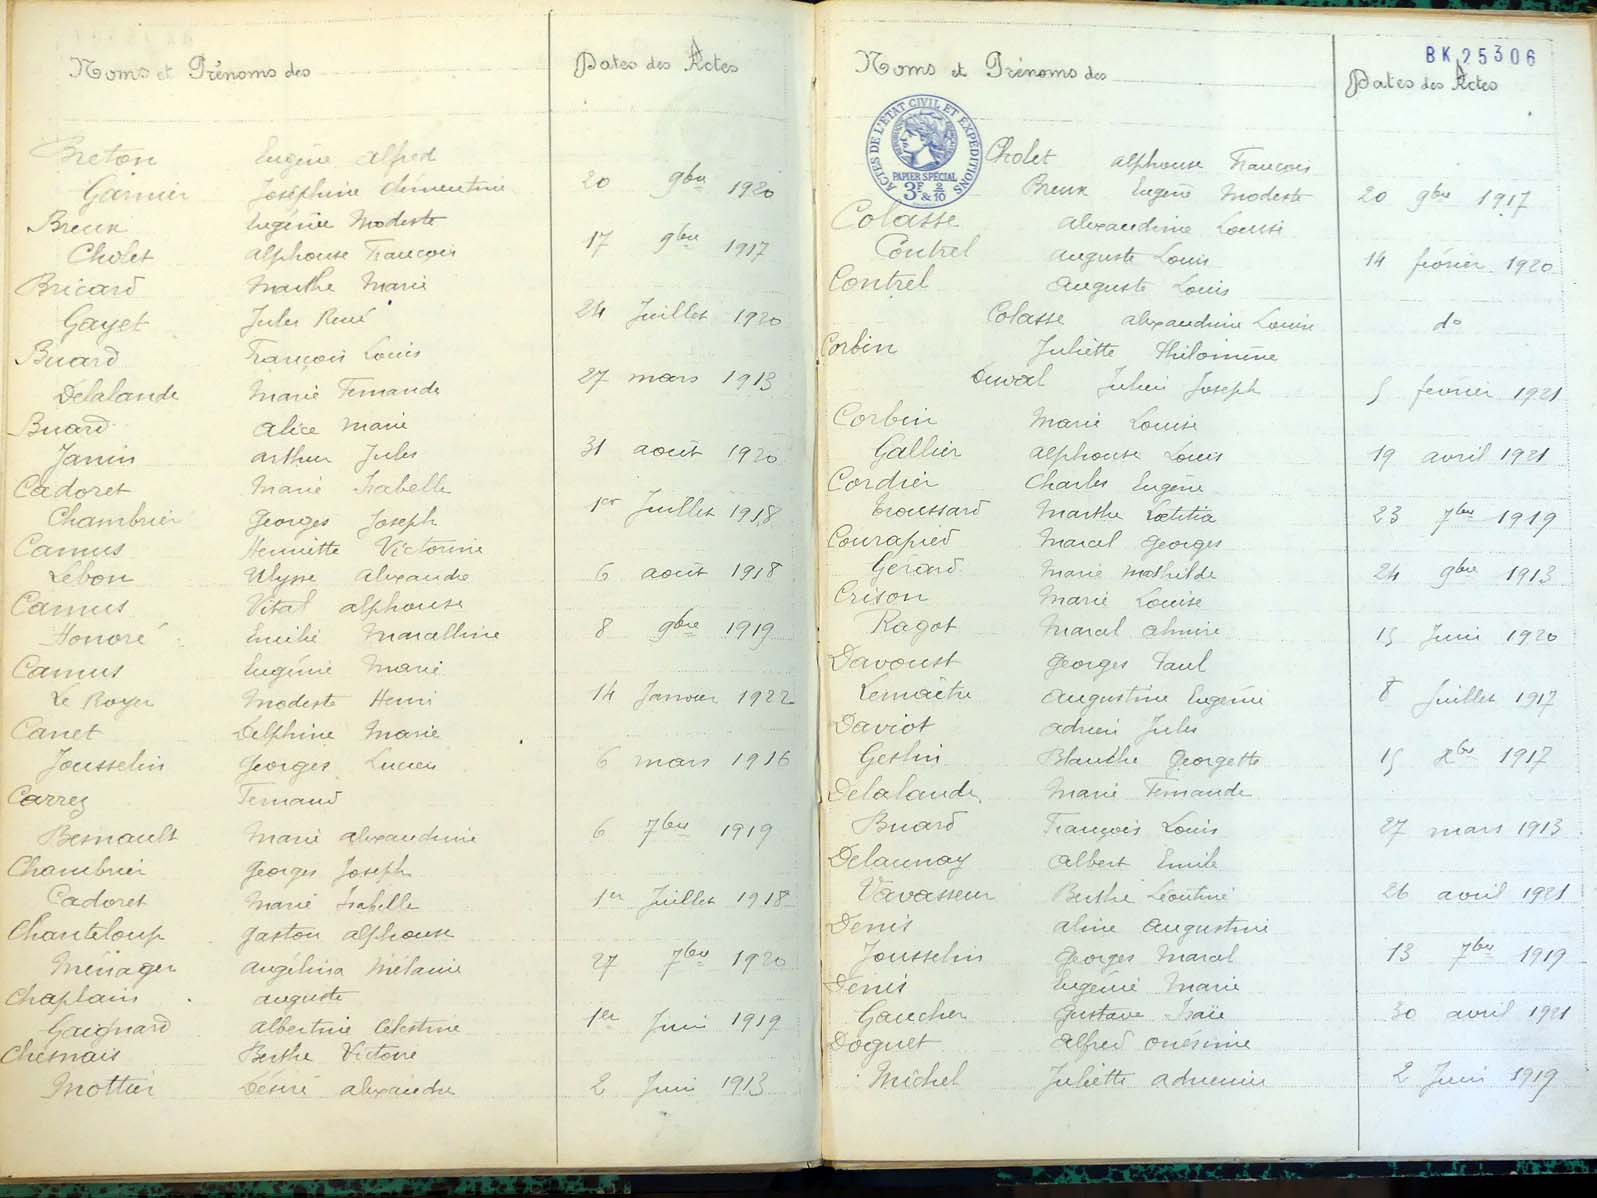 Noms et Prénoms des Dates des Actes
Breton Eugène Alfred
Garnier Joséphine Clémentine 20 9bre 1920
Breux Eugénie Modeste
Cholet Alphonse François 17 9bre 1917
Bricard Marthe Marie
Gayet Jules René 24 Juillet 1920
Buard François Louis
Delalande Marie Fernande 27 mars 1913
Buard Alice Marie
Janin Arthur Jules 31 août 1920
Cadoret Marie Isabelle
Chambrier Georges Joseph 1er Juillet 1918
Camus Henriette Victorine
Lebon Ulysse Alexandre 6 août 1918
Camus Vital Alphonse
Honoré Emilie Marcelline 8 9bre 1919
Camus Eugénie Marie
Le Royer Modeste Henri 14 Janvier 1922
Canet Delphine Marie
Jousselin Georges Lucien 6 mars 1916
Carrez Fernand
Bernault Marie Alexandrine 6 7bre 1919
Chambrier Georges Joseph
Cadoret Marie Isabelle 1er Juillet 1918
Chanteloup Gaston Alphonse
Ménager Angélina Mélanie 27 7bre 1920
Chaplain Auguste
Gaignard Albertine Célestine 1er Juin 1919
Chesnais Berthe Victoire
Mottier Désiré Alexandre 2 Juin 1913
BK 25306
Noms et Prénoms des Dates des Actes
ACTES DE L'ÉTAT CIVIL ET EXPÉDITIONS
PAPIER SPÉCIAL
3F & 2/10
Cholet Alphonse François
Breux Eugénie Modeste 20 9bre 1917
Colasse Alexandrine Louise
Contrel Auguste Louis 14 février 1920
Contrel Auguste Louis
Colasse Alexandrine Louise do
Corbin Juliette Philomène
Duval Julien Joseph 5 février 1921
Corbin Marie Louise
Gallier Alphonse Louis 19 avril 1921
Cordier Charles Eugène
Troussard Marthe Lœtitia 23 7bre 1919
Courapied Marcel Georges
Gérard Marie Mathilde 24 9bre 1913
Crison Marie Louise
Ragot Marcel Almire 15 Juin 1920
Davoust Georges Paul
Lemaître Augustine Eugénie 8 Juillet 1917
Daviot Adrien Jules
Geslin Blanche Georgette 15 Xbre 1917
Delalande Marie Fernande
Buard François Louis 27 mars 1913
Delaunay Albert Emile
Vavasseur Berthe Léontine 26 avril 1921
Denis Aline Augustine
Jousselin Georges Marcel 13 7bre 1919
Denis Eugénie Marie
Gaucher Gustave Isaïe 30 avril 1921
Doguet Alfred Onésime
Michel Juliette Adrienne 2 Juin 1919